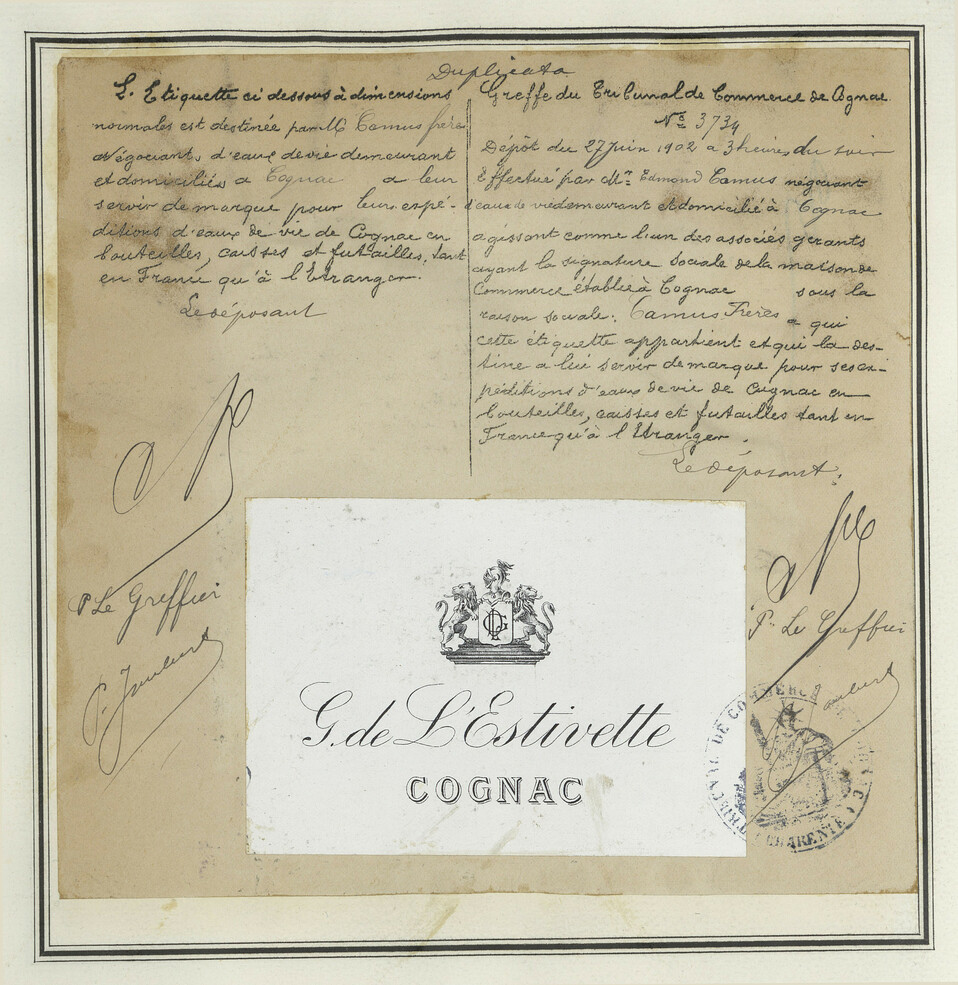 Duplicata
L'Etiquette ci dessous à dimensions
normales est destinée par M Camus frères
Négociants d'eaux de vie demeurant
et domiciliés a Cognac a leur
servir de marque pour leurs expé-
ditions d'eaux de vie de Cognac en
bouteilles, caisses et futailles, tant
en France qu'à l'Etranger.
Le déposant
P Le Greffier
P. Joubert
Greffe du Tribunal de Commerce de Cognac
No 3734
Dépôt du 27 juin 1902 a 3 heures du soir
Effectué par Mr Edmond Camus négociant
d'eaux de vie demeurant et domicilié à Cognac
agissant comme l'un des associés gérants
ayant la signature sociale de la maison de
Commerce établie à Cognac sous la
raison sociale: Camus Frères a qui
cette étiquette appartient et qui la des-
tine a lui servir de marque pour ses ex-
péditions d'eaux de vie de Cognac en
bouteilles, caisses et futailles tant en
France qu'à l'Etranger.
Le déposant.
Pr Le Greffier
Joubert
G. de L'Estivette
COGNAC
DE COMMERCE DE
CHARENTE